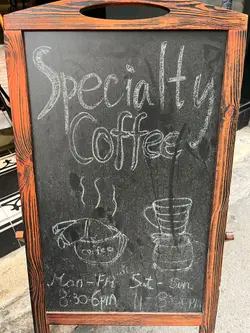 Specialty
Coffee
coffee
Mon-Fri Sat-Sun
8:30-6PM